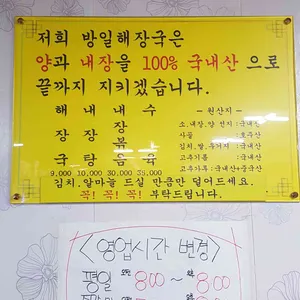 저희 방일해장국은
양과 내장을 100% 국내산 으로
끝까지 지키겠습니다.
해장국 9,000
내장탕 10,000
내장볶음 30,000
수육 35,000
- 원산지 -
소.내장.양.선지 :국내산
사골 :호주산
김치.쌀.우거지 :국내산
고추기름 :국내산
고추가루 :국내산+중국산
김치.알마늘 드실 만큼만 덜어드세요.
꼭! 꼭! 꼭! 부탁드립니다.
<영업시간 변경>
평일 오전 8:00 ~ 8:00